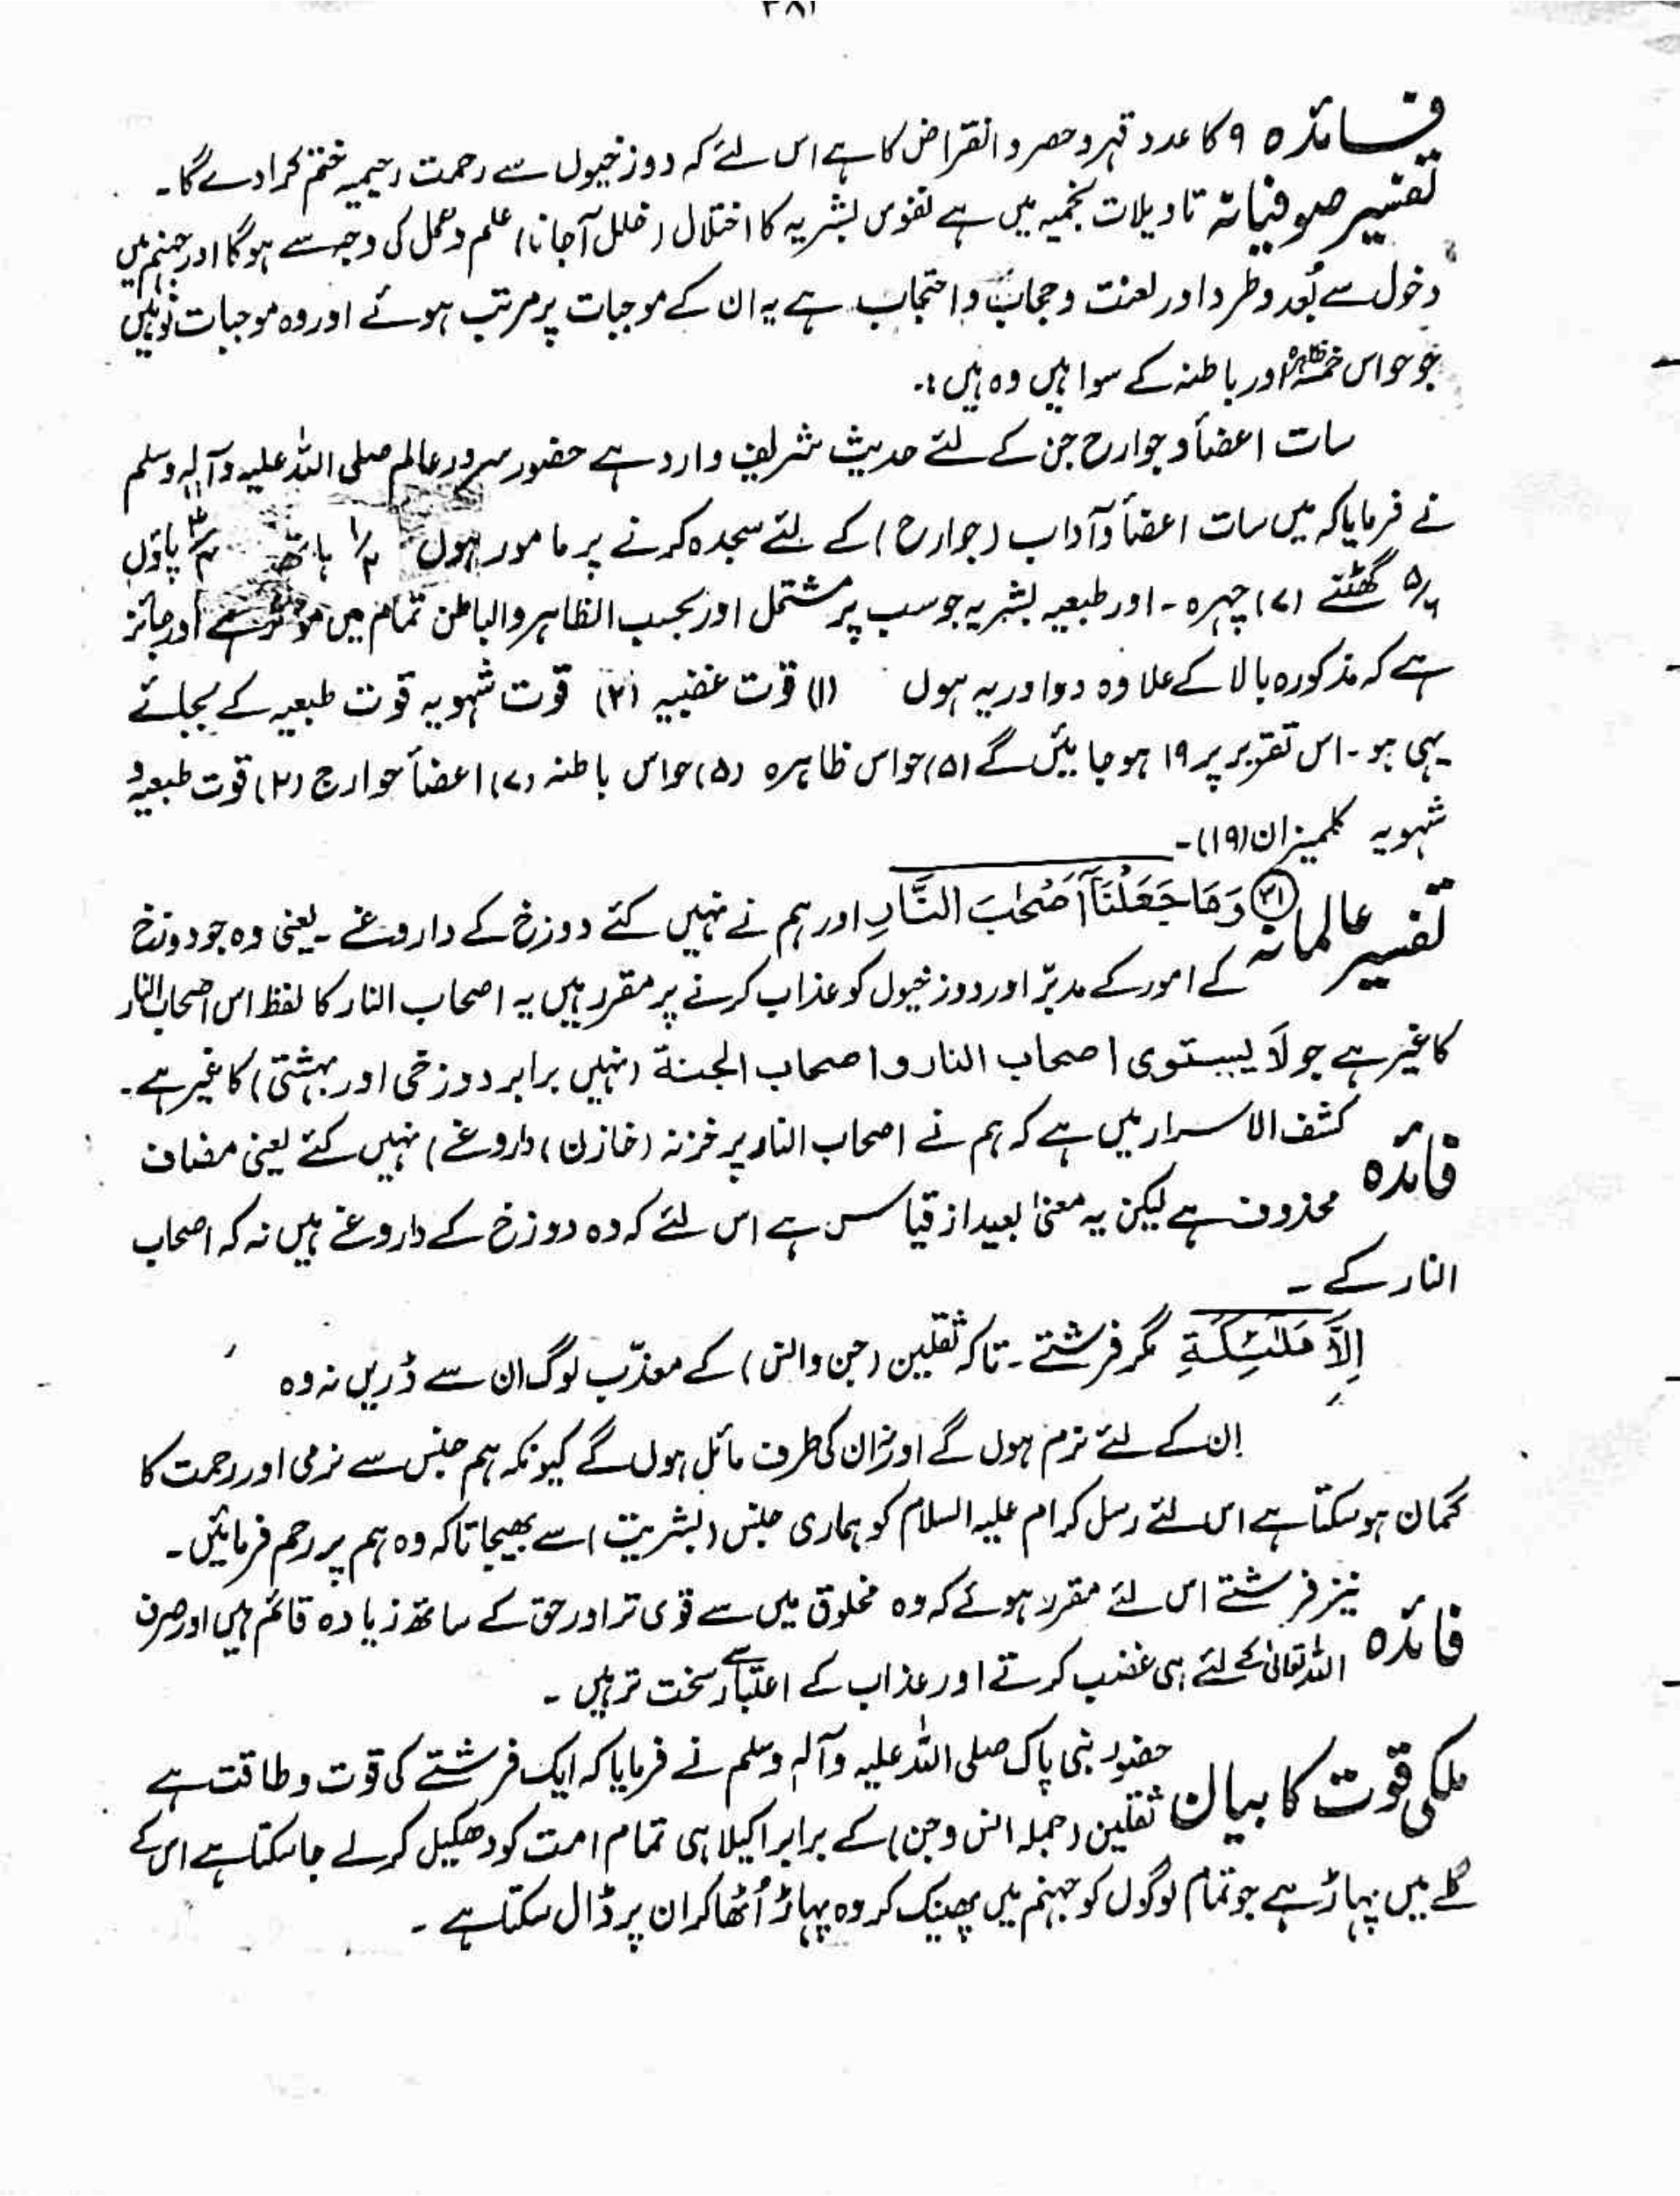 ۳۸۱
فائدہ ۹ کا عدد قہر و حصر و انقراض کا ہے اس لئے کہ دوزخیوں سے رحمت رحیمیہ ختم کرا دے گا۔
تفسیر صوفیانہ تاویلات نجمیہ میں ہے نفوس بشریہ کا اختلال (خلل آجانا) علم و عمل کی وجہ سے ہوگا اور جہنم میں
دخول سے بُعد و طرد اور لعنت و حجاب و احتجاب ہے یہ ان کے موجبات پر مرتب ہوئے اور وہ موجبات نو ہیں
جو حواس خمسہ ظاہرہ اور باطنہ کے سوا ہیں وہ ہیں:۔
سات اعضأ و جوارح جن کے لئے حدیث شریف وارد ہے حضور سرور عالم صلی اللہ علیہ وآلہ وسلم
نے فرمایا کہ میں سات اعضأ و آداب (جوارح) کے لئے سجدہ کرنے پر مامور ہوں ۱/۲ ہاتھ ۳/۴ پاؤں
۵/۶ گھٹنے (۷) چہرہ ۔ اور طبعیہ بشریہ جو سب پر مشتمل اور بحسب الظاہر والباطن تمام میں مؤثر ہے اور جائز
ہے کہ مذکورہ بالا کے علاوہ دو اور یہ ہوں (۱) قوت غضبیہ (۲) قوت شہویہ قوت طبعیہ کے بجائے
یہی ہو ۔ اس تقریر پر ۱۹ ہو جائیں گے (۵) حواس ظاہرہ (۵) حواس باطنہ (۷) اعضأ جوارح (۲) قوت طبعیہ و
شہویہ کلمیزان (۱۹)۔
تفسیر عالمانہ ﴿۳۱﴾ وَمَا جَعَلْنَآ اَصْحٰبَ النَّارِ اور ہم نے نہیں کئے دوزخ کے داروغے ۔ یعنی وہ جو دوزخ
کے امور کے مدبّر اور دوزخیوں کو عذاب کرنے پر مقرر ہیں یہ اصحاب النار کا لفظ اس اصحاب النار
کا غیر ہے جو لَا یستوی اصحاب النار و اصحاب الجنة (نہیں برابر دوزخی اور بہشتی) کا غیر ہے۔
فائدہ کشف الاسرار میں ہے کہ ہم نے اصحاب النار پر خزنہ (خازن) داروغے) نہیں کئے یعنی مضاف
محذوف ہے لیکن یہ معنیٰ بعید از قیاس ہے اس لئے کہ وہ دوزخ کے داروغے ہیں نہ کہ اصحاب
النار کے ۔
اِلَّا مَلٰٓئِكَةِ مگر فرشتے ۔ تاکہ ثقلین (جن و انس) کے معذّب لوگ ان سے ڈریں نہ وہ
اِن کے لئے نرم ہوں گے اور نہ ان کی طرف مائل ہوں گے کیونکہ ہم جنس سے نرمی اور رحمت کا
گمان ہو سکتا ہے اس لئے رسل کرام علیہ السلام کو ہماری جنس (بشریت) سے بھیجا تاکہ وہ ہم پر رحم فرمائیں ۔
فائدہ نیز فرشتے اس لئے مقرر ہوئے کہ وہ مخلوق میں سے قوی تر اور حق کے ساتھ زیادہ قائم ہیں اور صرف
اللہ تعالیٰ کے لئے ہی غضب کرتے اور عذاب کے اعتبار سے سخت تر ہیں ۔
ملکی قوت کا بیان حضور نبی پاک صلی اللہ علیہ وآلہ وسلم نے فرمایا کہ ایک فرشتے کی قوت و طاقت ہے
ثقلین (جملہ انس و جن) کے برابر اکیلا ہی تمام امت کو دھکیل کر لے جا سکتا ہے اس کے
گلے میں پہاڑ ہے جو تمام لوگوں کو جہنم میں پھینک کر وہ پہاڑ اُٹھا کر ان پر ڈال سکتا ہے ۔